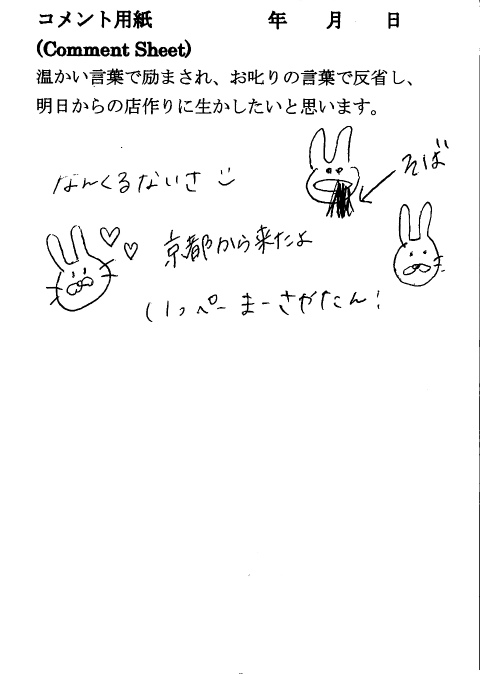 コメント用紙 年 月 日
(Comment Sheet)
温かい言葉で励まされ、お叱りの言葉で反省し、
明日からの店作りに生かしたいと思います。
なんくるないさ
そば
京都から来たよ
いっぺーまーさやたん!